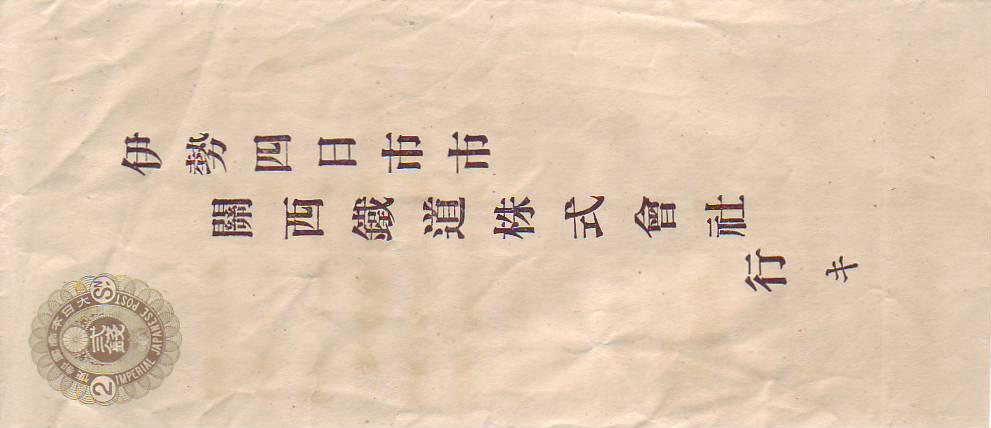 伊勢四日市市
關西鐵道株式會社
行 キ
大日本帝國郵便
IMPERIAL JAPANESE POST
貳錢
2
SN